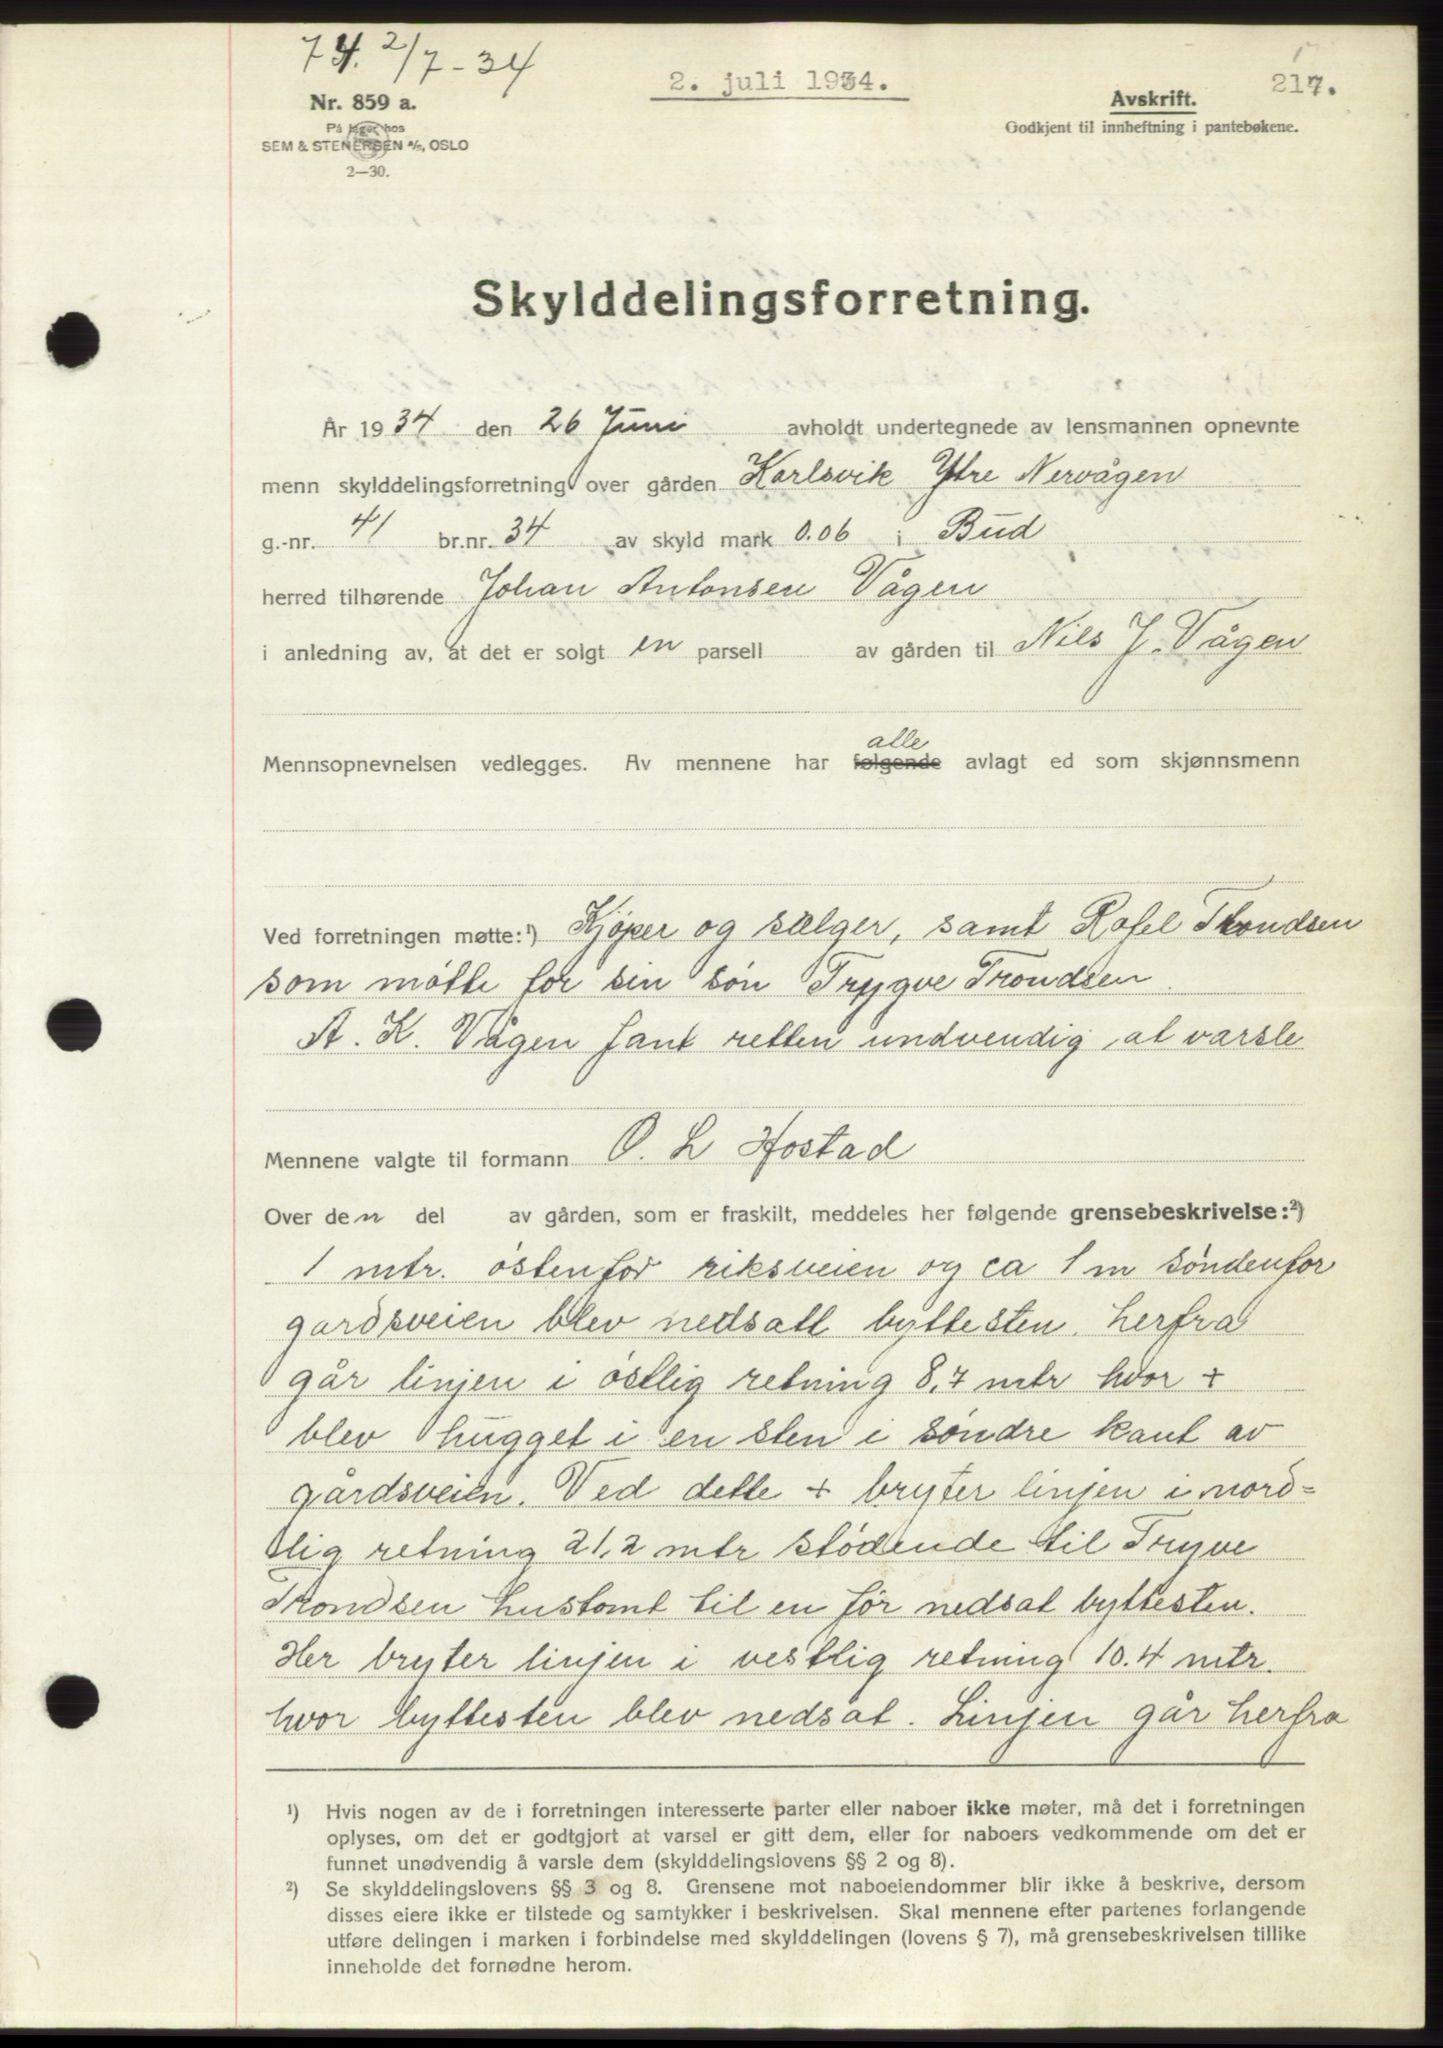 74. 2/7-34
2. juli 1934.
217.
Nr. 859 a.
På lager hos
SEM & STENERSEN A/S, OSLO
2—30.
Avskrift.
Godkjent til innheftning i pantebøkene.
Skylddelingsforretning.
År 1934 den 26 Juni avholdt undertegnede av lensmannen opnevnte
menn skylddelingsforretning over gården Karlsvik Ytre Nervågen
g.-nr. 41 br.nr. 34 av skyld mark 0.06 i Bud
herred tilhørende Johan Antonsen Vågen
i anledning av, at det er solgt en parsell av gården til Nils J. Vågen
alle
Mennsopnevnelsen vedlegges. Av mennene har følgende avlagt ed som skjønnsmenn
Ved forretningen møtte:¹) Kjøper og sælger, samt Rafel Trondsen
som møtte for sin søn Trygve Trondsen
A. K. Vågen fant retten undvendig at varsle
Mennene valgte til formann O. L Hostad
Over den del av gården, som er fraskilt, meddeles her følgende grensebeskrivelse:²)
1 mtr. østenfor riksveien og ca 1 m søndenfor
gardsveien blev nedsatt byttesten. herfra
går linjen i østlig retning 8,7 mtr hvor +
blev hugget i en sten i søndre kant av
gårdsveien. Ved dette + bryter linjen i nord=
lig retning 21,2 mtr stødende til Tryve
Trondsen hustomt til en før nedsat byttesten.
Her bryter linjen i vestlig retning 10.4 mtr.
hvor byttesten blev nedsat. Linjen går herfra
¹) Hvis nogen av de i forretningen interesserte parter eller naboer ikke møter, må det i forretningen
oplyses, om det er godtgjort at varsel er gitt dem, eller for naboers vedkommende om det er
funnet unødvendig å varsle dem (skylddelingslovens §§ 2 og 8).
²) Se skylddelingslovens §§ 3 og 8. Grensene mot naboeiendommer blir ikke å beskrive, dersom
disses eiere ikke er tilstede og samtykker i beskrivelsen. Skal mennene efter partenes forlangende
utføre delingen i marken i forbindelse med skylddelingen (lovens § 7), må grensebeskrivelsen tillike
inneholde det fornødne herom.